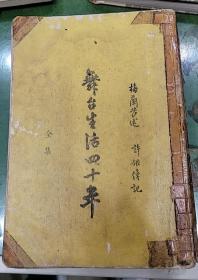 梅蘭芳述 許姬傳記
舞台生活四十年
全集